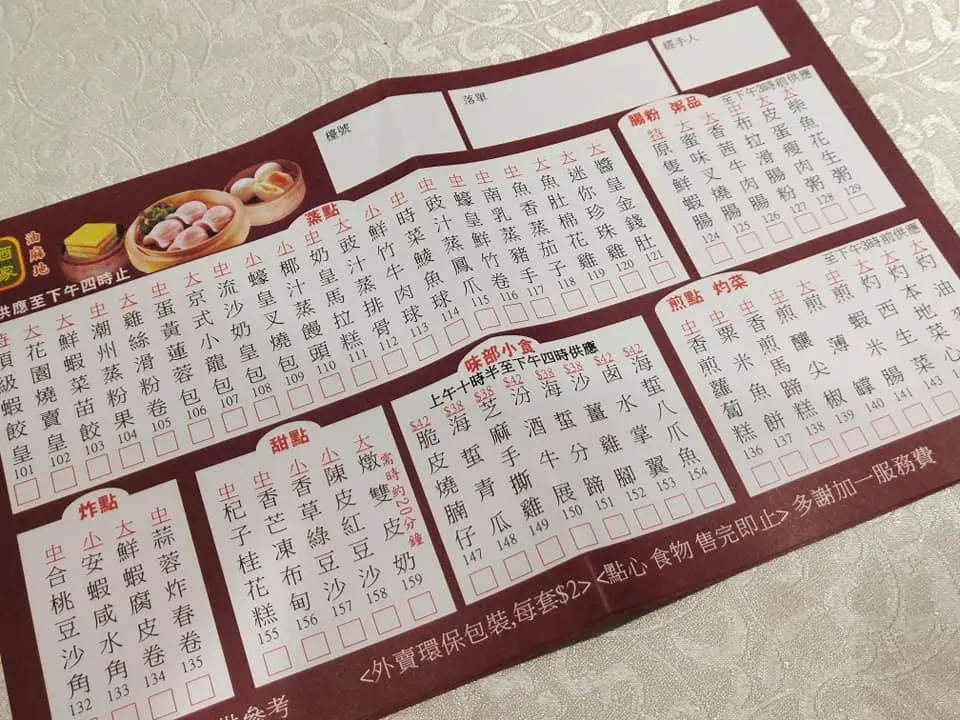 檯號
落單
經手人
酒家
油麻地
供應至下午四時止
蒸點
頂級蝦餃皇 101
大 花園燒賣皇 102
大 鮮蝦菜苗餃 103
中 潮州蒸粉果 104
大 雞絲滑粉卷 105
中 蛋黃蓮蓉包 106
大 京式小龍包 107
中 流沙奶皇包 108
小 蠔皇叉燒包 109
中 椰汁蒸饅頭 110
大 奶皇馬拉糕 111
豉汁蒸排骨 112
小 鮮竹牛肉球 113
中 時菜鯪魚球 114
中 豉汁蒸鳳爪 115
中 蠔皇鮮竹卷 116
中 南乳蒸豬手 117
中 魚香茄子 118
大 魚肚棉花雞 119
大 迷你珍珠雞 120
大 醬皇金錢肚 121
腸粉 粥品
至下午2時前供應
特 原隻鮮蝦腸 124
大 蜜味叉燒腸 125
大 香茜牛肉腸 126
中 布拉滑腸粉 127
大 皮蛋瘦肉粥 128
大 柴魚花生粥 129
煎點 灼菜
至下午3時前供應
中 香煎蘿蔔糕 136
中 粟米魚餅 137
中 香煎馬蹄糕 138
大 煎釀尖椒 139
中 煎薄罉 140
大 煎蝦米腸 141
大 灼西生菜
灼本地菜心 143
味部小食
上午十時半至下午四時供應
$42 脆皮燒腩仔 147
$38 海蜇青瓜 148
$38 芝麻手撕雞 149
$42 汾酒牛展 150
$38 海蜇分蹄 151
$38 沙薑雞腳 152
$42 鹵水掌翼 153
$42 海蜇八爪魚 154
甜點
中 杞子桂花糕 155
中 香芒凍布甸 156
小 香草綠豆沙 157
小 陳皮紅豆沙 158
大 燉雙皮奶 159
需時約20分鐘
炸點
中 合桃豆沙角 132
小 安蝦咸水角 133
大 鮮蝦腐皮卷 134
中 蒜蓉炸春卷 135
<外賣環保包裝,每套$2> <點心 食物 售完即止> 多謝加一服務費
參考